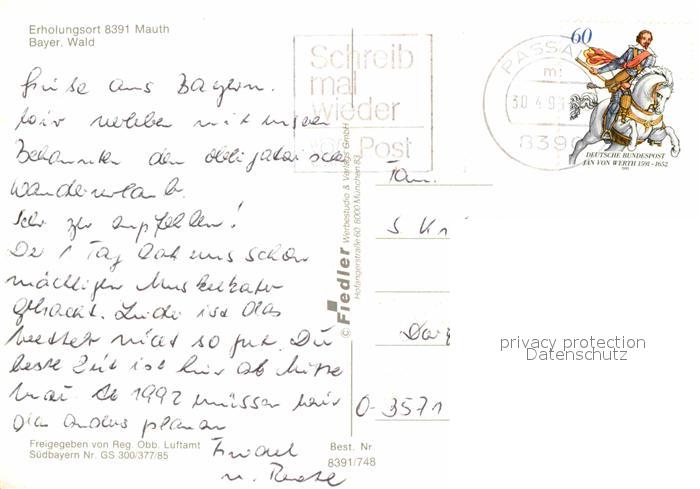 Erholungsort 8391 Mauth
Bayer. Wald
Grüße aus Bayern.
Wir erleben mit unseren
Bekannten den obligatorischen
Wanderurlaub.
Sehr zu empfehlen!
Der 1 Tag hat uns schon
mächtigen Muskelkater
gebracht. Leider ist das
Wetter nicht so gut. Die
beste Zeit ist hier ab Mitte
Mai. Ab 1992 müssen wir
das anders planen
Friedel
u.
Freigegeben von Reg. Obb. Luftamt
Südbayern Nr. GS 300/377/85
Best. Nr
8391/748
© Fiedler Werbestudio & Verlags GmbH
Hofangerstraße 60 8000 München 83
Schreib
mal
wieder
Post
PASSA
30.4.9
839
60
DEUTSCHE BUNDESPOST
JAN VON WERTH 1591-1652
1991
Fam.
S Kr
Dor
O-3571
privacy protection
Datenschutz